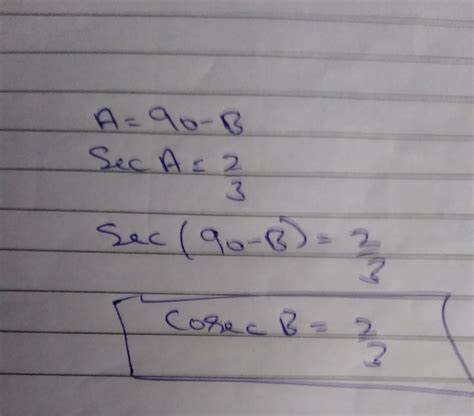 A = 90 - B
Sec A = 2/3
Sec (90 - B) = 2/3
Cosec B = 2/3